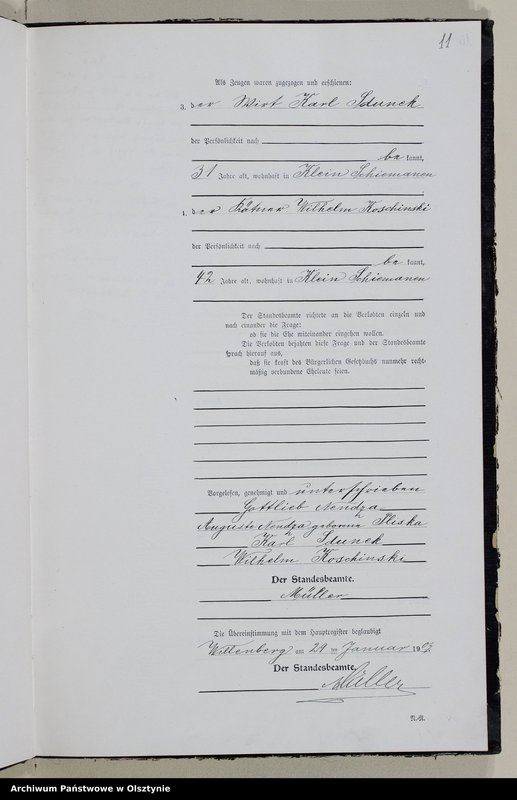 11
Als Zeugen waren zugezogen und erschienen:
3. der Wirt Karl Sdunek
der Persönlichkeit nach
be kannt,
31 Jahre alt, wohnhaft in Klein Schiemanen
4. der Kätner Wilhelm Koschinski
der Persönlichkeit nach
be kannt,
42 Jahre alt, wohnhaft in Klein Schiemanen
Der Standesbeamte richtete an die Verlobten einzeln und
nach einander die Frage:
ob sie die Ehe miteinander eingehen wollen.
Die Verlobten bejahten diese Frage und der Standesbeamte
sprach hierauf aus,
daß sie kraft des Bürgerlichen Gesetzbuchs nunmehr recht-
mäßig verbundene Eheleute seien.
Vorgelesen, genehmigt und unterschrieben
Gottlieb Nendza
Auguste Nendza geborene Pliska
Karl Sdunek
Wilhelm Koschinski
Der Standesbeamte.
Müller
Die Übereinstimmung mit dem Hauptregister beglaubigt
am 29 ten Januar 19
Der Standesbeamte.
Müller
Archiwum Państwowe w Olsztynie